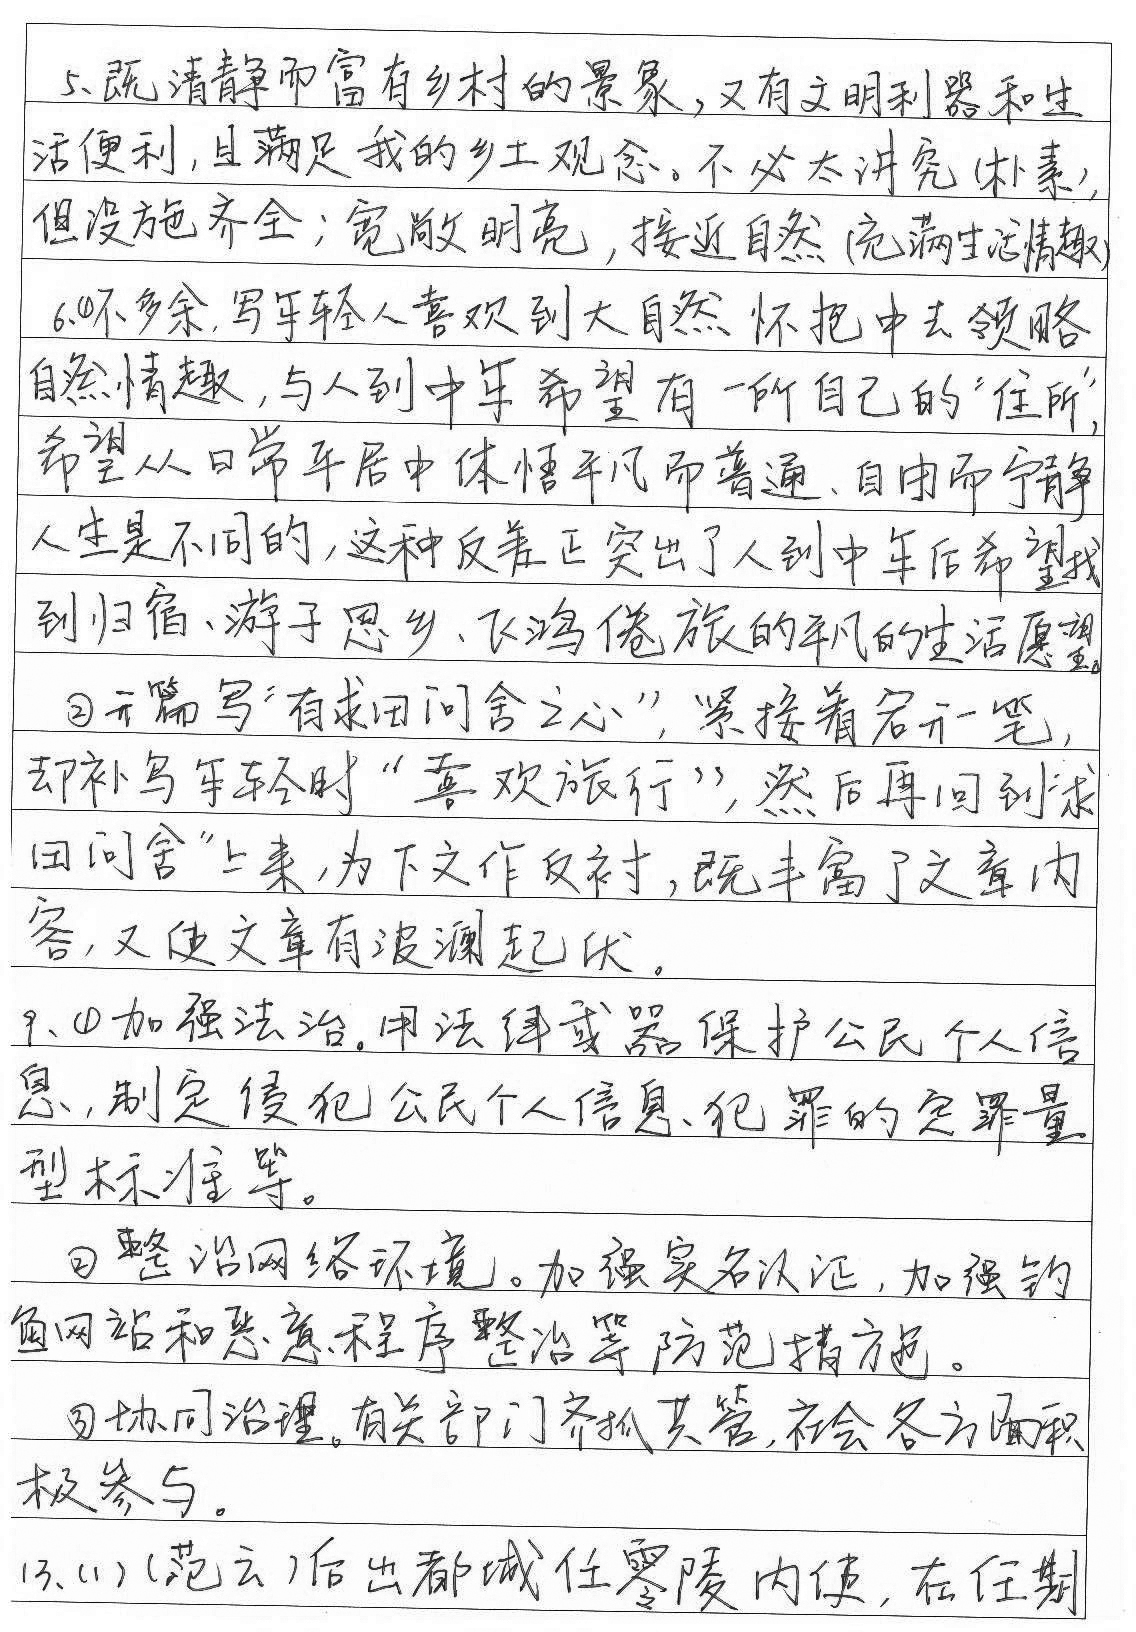 5、既清静而富有乡村的景象，又有文明利器和生
活便利，且满足我的乡土观念。不必太讲究（朴素），
但设施齐全；宽敞明亮，接近自然（充满生活情趣）
6、①不多余，写年轻人喜欢到大自然怀抱中去领略
自然情趣，与人到中年希望有一所自己的“住所”，
希望从日常平居中体悟平凡而普通、自由而宁静
人生是不同的，这种反差正突出了人到中年后希望找
到归宿、游子思乡、飞鸿倦旅的平凡的生活愿望。
②开篇写“有求田问舍之心”，紧接着宕开一笔，
却补写年轻时“喜欢旅行”，然后再回到“求
田问舍”上来，为下文作反衬，既丰富了文章内
容，又使文章有波澜起伏。
9、①加强法治。用法律武器保护公民个人信
息，制定侵犯公民个人信息、犯罪的定罪量
型标准等。
②整治网络环境。加强实名认证，加强钓
鱼网站和恶意程序整治等防范措施。
③协同治理。有关部门齐抓共管，社会各方面积
极参与。
13、（1）（范云）后出都城任零陵内使，在任期